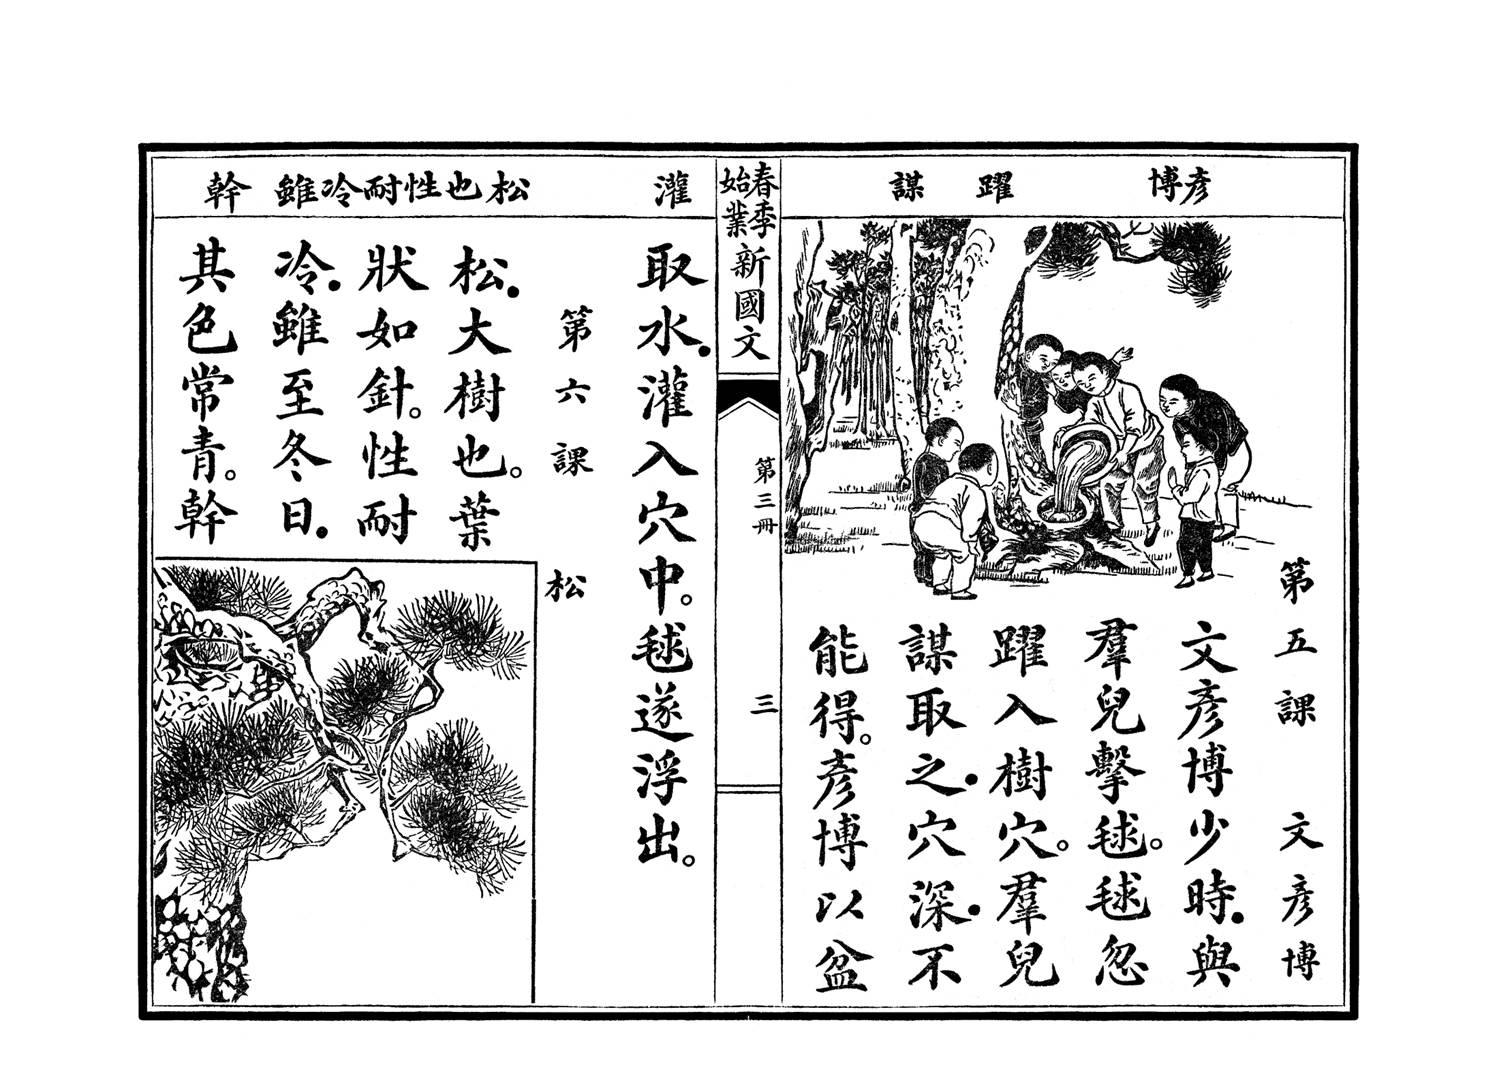 彥博
躍
謀
第五課　文彥博
文彥博少時．與
羣兒擊毬。毬忽
躍入樹穴。羣兒
謀取之．穴深．不
能得。彥博以盆
春季始業新國文
第三冊
三
灌
松也性耐冷雖
幹
取水．灌入穴中。毬遂浮出。
第六課　松
松．大樹也。葉
狀如針。性耐
冷．雖至冬日．
其色常青。幹